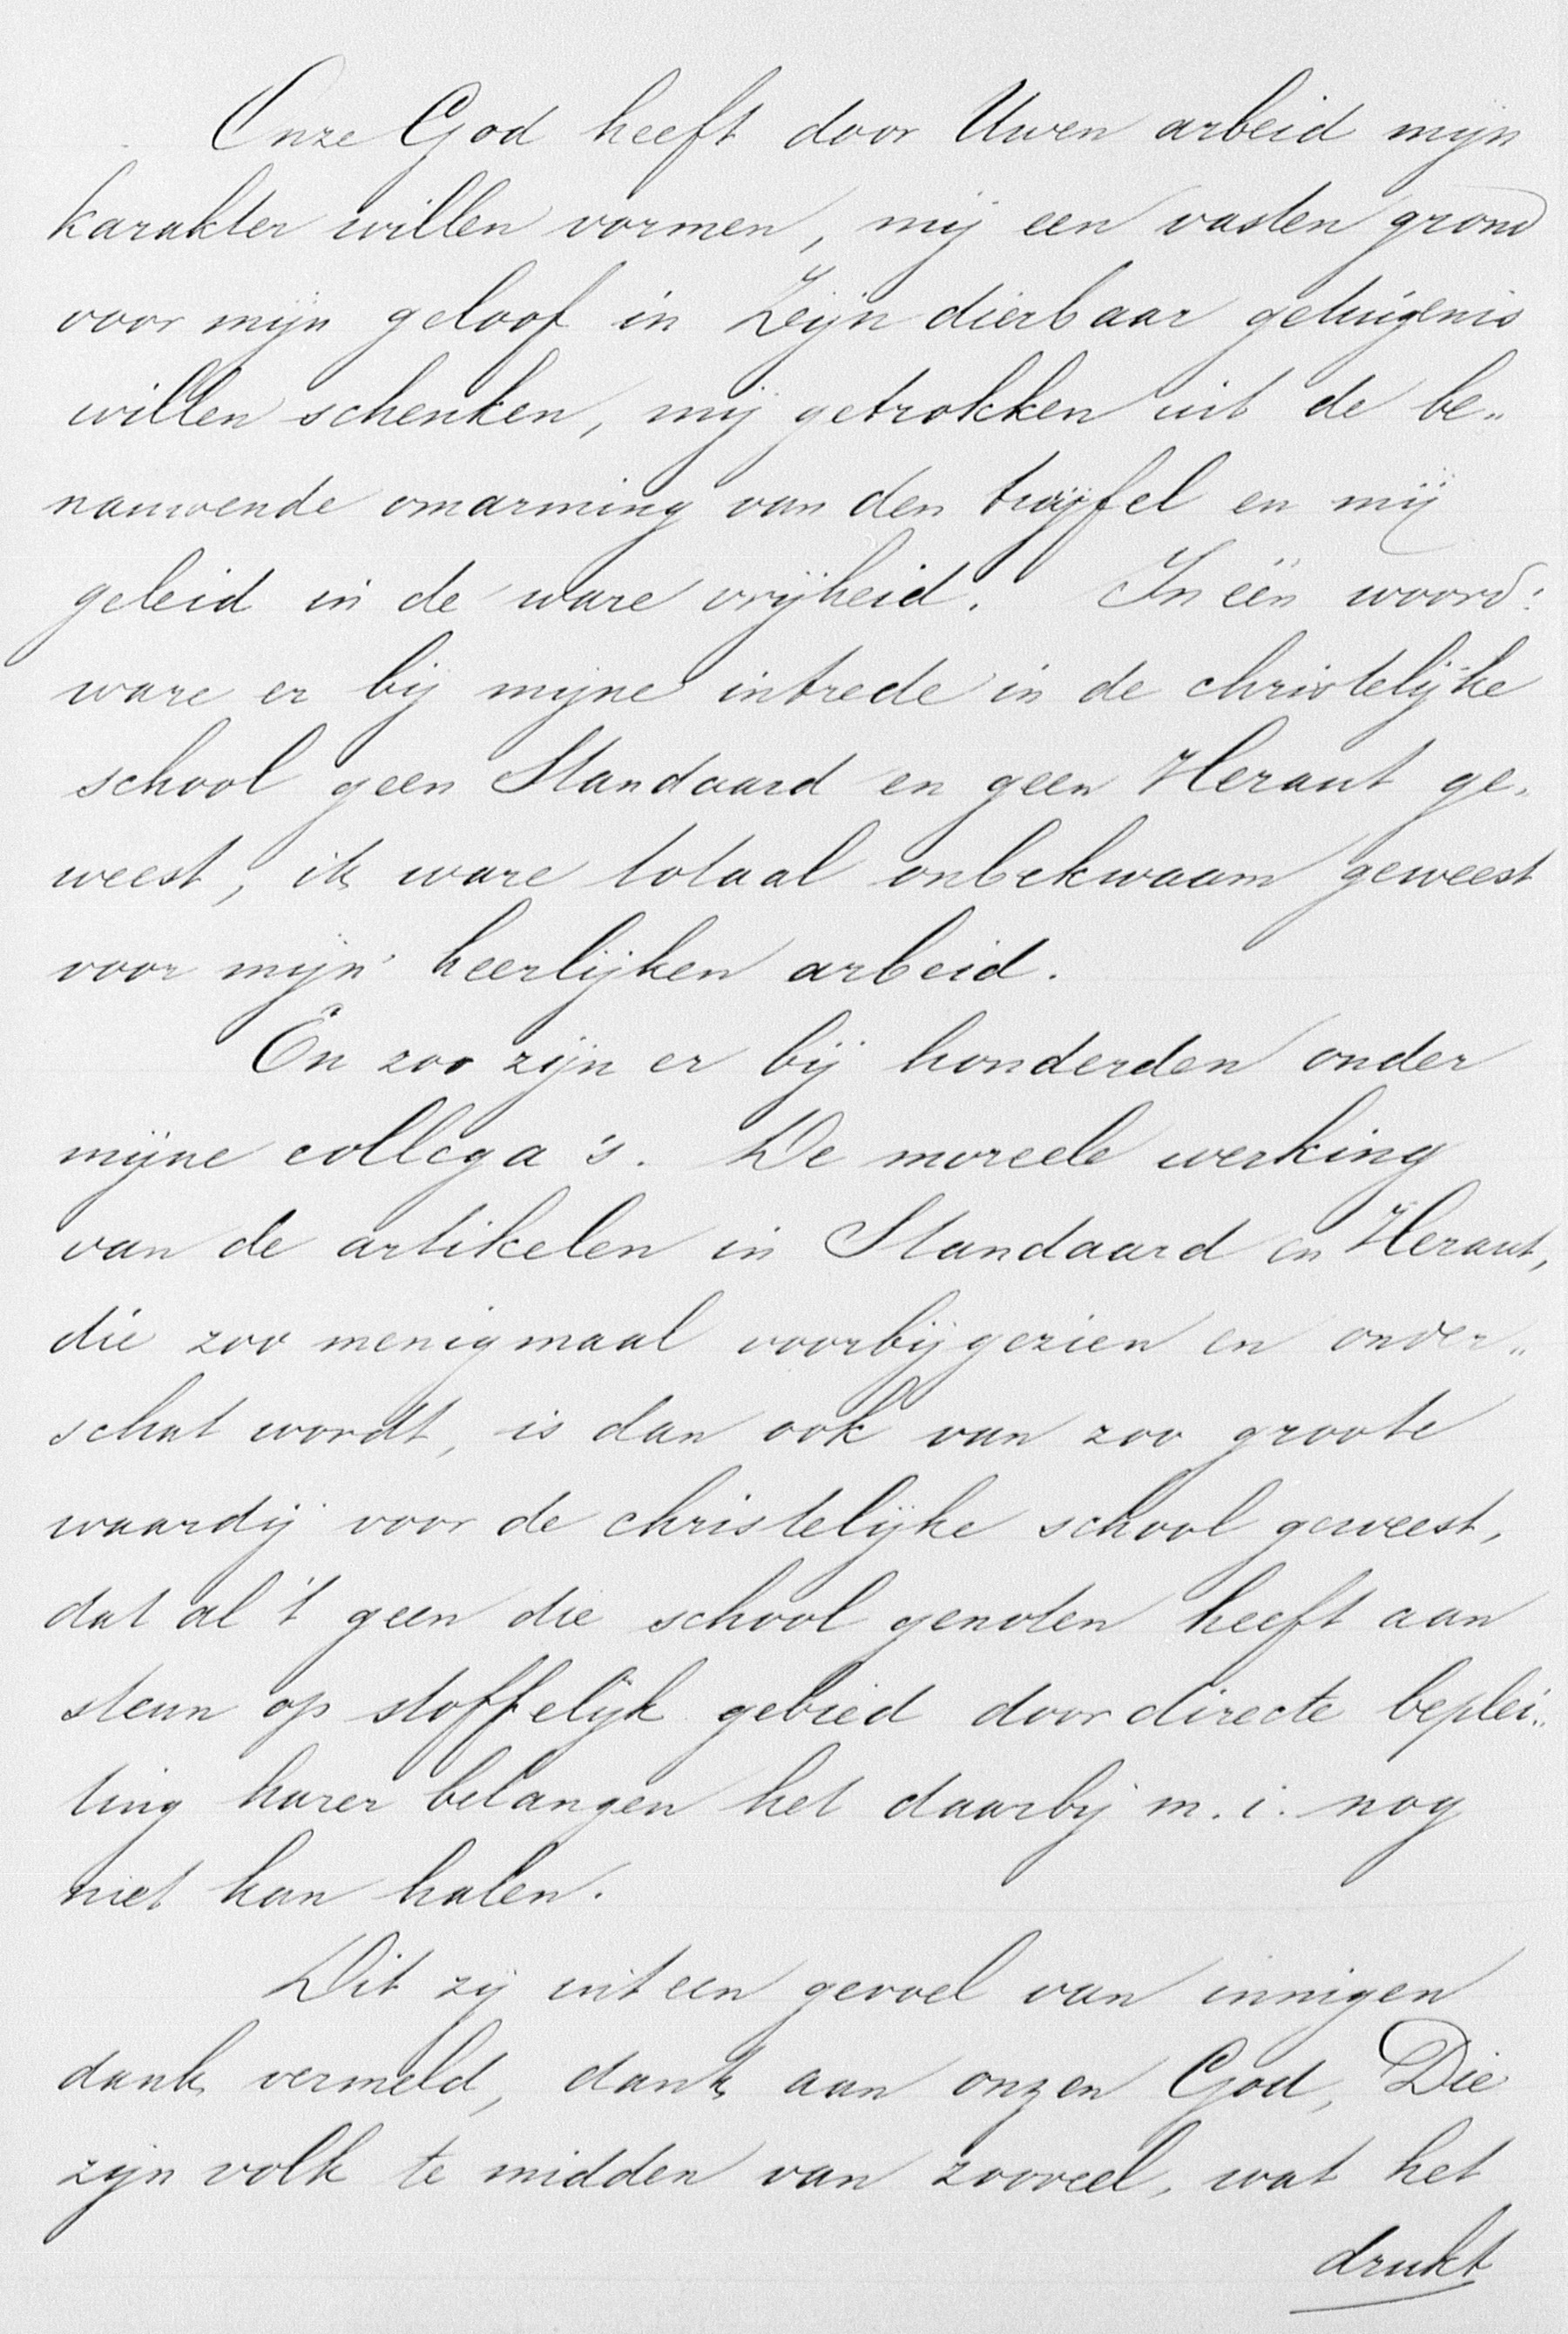 Onze God heeft door Uwen arbeid mijn
karakter willen vormen, mij een vasten grond
voor mijn geloof in Zijn dierbaar getuigenis
willen schenken, mij getrokken uit de be„
nauwende omarming van den twijfel en mij
geleid in de ware vrijheid. In één woord:
ware er bij mijne intrede in de christelijke
school geen Standaard en geen Heraut ge„
weest, ik ware totaal onbekwaam geweest
voor mijn' heerlijken arbeid.
En zoo zijn er bij honderden onder
mijne collega's. De moreele werking
van de artikelen in Standaard en Heraut,
die zoo menigmaal voorbijgezien en onder„
schat wordt, is dan ook van zoo groote
waardij voor de christelijke school geweest,
dat al 't geen die school genoten heeft aan
steun op stoffelijk gebied door directe beplei„
ting harer belangen het daarbij m.i. nog
niet kan halen.
Dit zij uit een gevoel van innigen
dank vermeld, dank aan onzen God, Die
zijn volk te midden van zooveel, wat het
drukt